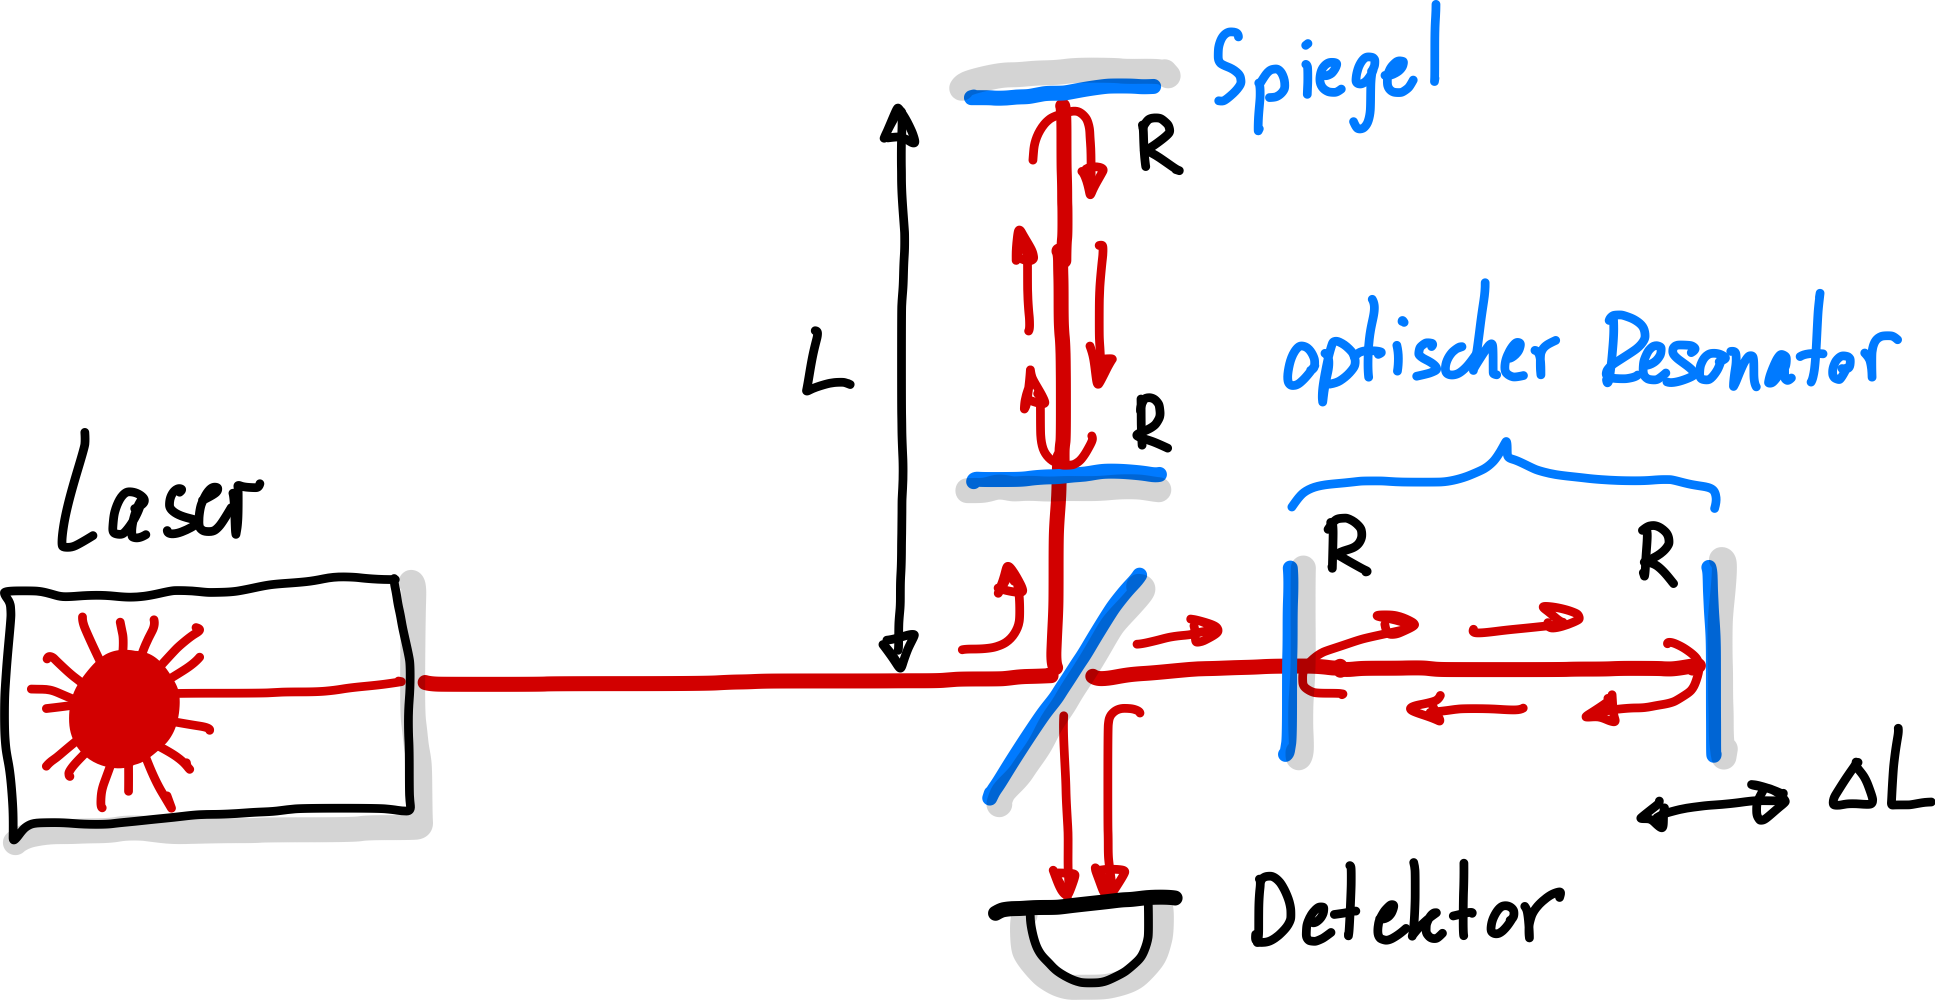 Spiegel
R
L
R
optischer Resonator
Laser
R
R
ΔL
Detektor